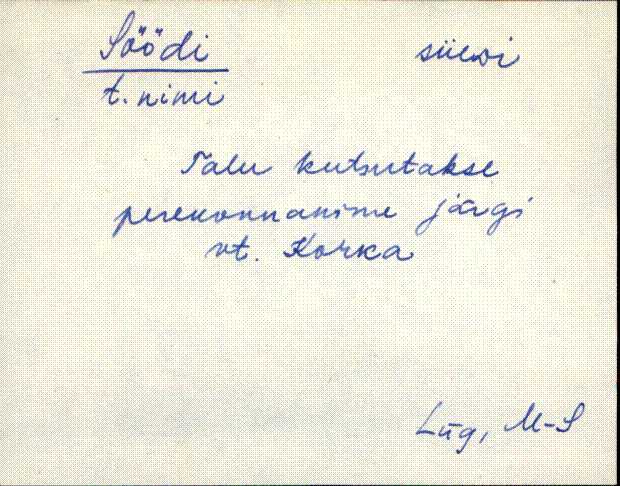 Söödi süeźi
t. nimi
Talu kutsutakse
perekonnanime järgi
vt. Korka
Lüg, M-S